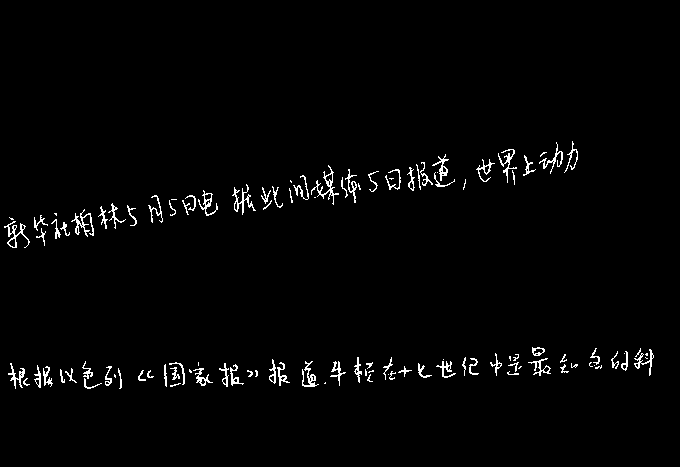 新华社柏林5月5日电 据此间媒体5日报道，世界上动力
根据以色列《国家报》报道.牛顿在十七世纪中是最知名的科